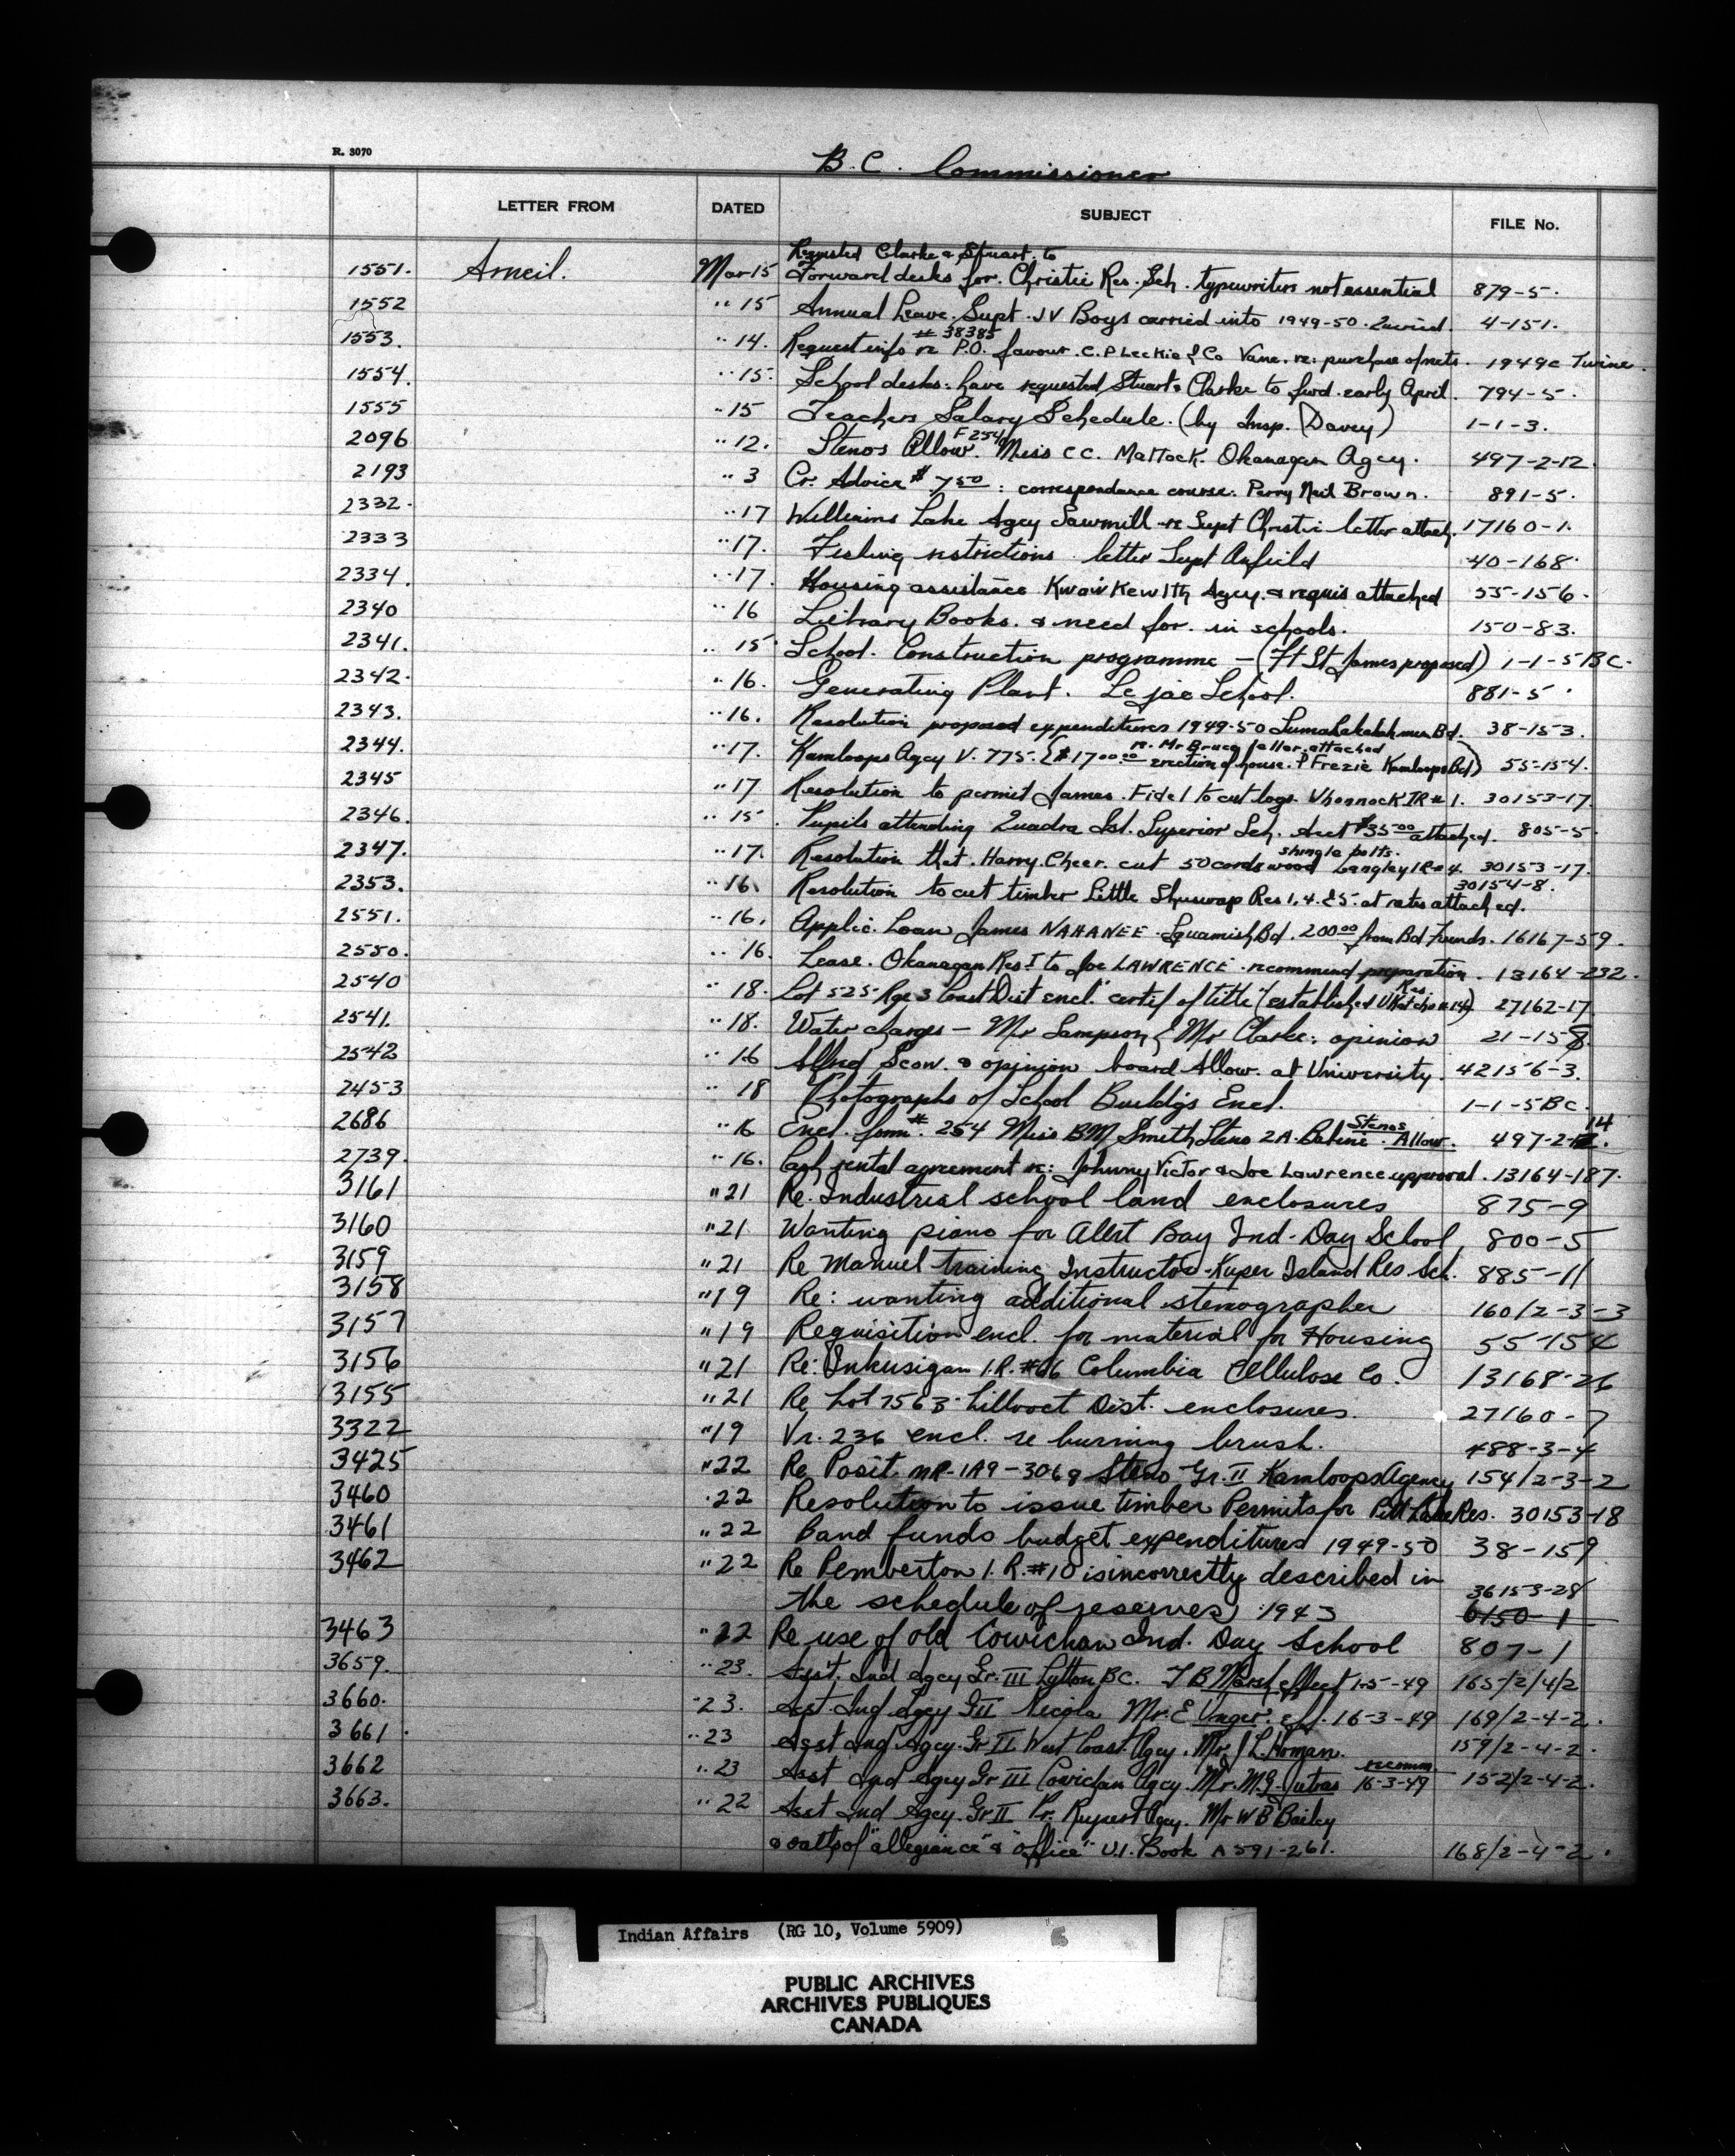 R. 3070
B.C. Commissioner
LETTER FROM DATED SUBJECT FILE No.
Requested Clarke & Stuart to
1551. Arneil. Mar 15 Forward desks for Christie Res. Sch. typewriters not essential 879-5.
1552 " 15 Annual Leave. Supt. J V Boys carried into 1949-50. 4-151.
# 38385
1553. " 14. Request info re P.O. favour C.P Leckie & Co Vanc. re: purchase of nets. 1949c Twine.
1554. " 15. School desks: have requested Stuart & Clarke to fwd. early April. 794-5.
1555 " 15 Teachers Salary Schedule. (by Insp. Davey) 1-1-3.
F 254
2096 " 12. Stenos Allow. Miss C C. Mattock. Okanagan Agcy. 497-2-12.
2193 " 3 Cr. Advice $ 7.50: correspondance course: Perry Neil Brown. 891-5.
2332. " 17 Williams Lake Agcy Sawmill re Supt Christie letter attach. 17160-1.
2333 " 17. Fishing restrictions letter Supt Anfield 40-168.
2334. " 17. Housing assistance Kwawkewlth Agcy. & requis attached 55-156.
2340 " 16 Library Books. & need for in schools. 150-83.
2341. " 15 School Construction programme - (Ft St James proposed) 1-1-5 BC.
2342. " 16. Generating Plant. Lejac School. 881-5.
2343. " 16. Resolution proposed expenditures 1949-50 Bd. 38-153.
re. Mr Bruce letter attached
2344. " 17. Kamloops Agcy V. 775. ($1700.00 erection of house. P Frezie Kamloops Bd) 55-154.
2345 " 17 Resolution to permit James Fidel to cut logs. Whonnock IR # 1. 30153-17.
2346. " 15. Pupils attending Quadra Isl. Superior Sch. Acct $35.00 attached. 805-5.
shingle bolts.
2347. " 17. Resolution that Harry Cheer cut 50 cords wood Langley IR # 4. 30153-17.
2353. " 16. Resolution to cut timber Little Shuswap Res 1, 4. & 5. at rates attached. 30154-8.
2551. " 16. Applic. Loan James NAHANEE Squamish Bd. 200.00 from Bd Funds. 16167-59.
2550. " 16. Lease. Okanagan Res I to Joe LAWRENCE recommend preparation. 13164-232.
Res.
2540 " 18. Lot 525 Rge 3 Coast Dist encl. certif of title (established # 14) 27162-17.
2541. " 18. Water charges - Mr Sampson & Mr Clarke: opinion 21-158.
2542 " 16 Alfred Scow. & opinion board Allow. at University. 42156-3.
2453 " 18 Photographs of School Buildgs Encl. 1-1-5 BC.
Stenos 14
2686 " 16 Encl. form # 254 Miss BM Smith Steno 2A. Babine. Allow. 497-2-
2739. " 16. Cash rental agreement re: Johnny Victor & Joe Lawrence approval. 13164-187.
3161 " 21 Re. Industrial school land enclosures 875-9
3160 " 21 Wanting piano for Alert Bay Ind. Day School 800-5
3159 " 21 Re Manuel training Instructor Kuper Island Res Sch. 885-11
3158 " 19 Re: wanting additional stenographer 160/2-3-3
3157 " 19 Requisition encl. for material for Housing 55-154
3156 " 21 Re: Inkusigan I.R. #66 Columbia Cellulose Co. 13168-26
3155 " 21 Re Lot 7563 Lillooet Dist. enclosures. 27160-7
3322 " 19 Vr. 236 encl. re burning brush. 488-3-4
3425 " 22 Re Posit. NR-1A9-3069 Steno Gr. II Kamloops Agency 154/2-3-2
3460 " 22 Resolution to issue timber Permits for Pitt Lake Res. 30153-18
3461 " 22 Band funds budget expenditures 1949-50 38-159
3462 " 22 Re Pemberton I.R. #10 is incorrectly described in 36153-28
the schedule of reserves 1943 6150-1
3463 " 22 Re use of old Cowichan Ind. Day School 807-1
3659. " 23. Asst. Ind Agcy Gr. III Lytton BC. F B Marsh effect 1-5-49 165/2/4/2
3660. " 23. Asst. Ind Agcy Gr II Nicola Mr. E Unger. eff. 16-3-49 169/2-4-2.
3661. " 23 Asst Ind Agcy. Gr II West Coast Agcy. Mr J L. Homan. 159/2-4-2.
recomm.
3662 " 23 Asst Ind Agcy Gr III Cowichan Agcy. Mr. M.G. Jutras 16-3-49 152/2-4-2.
3663. " 22 Asst Ind Agcy. Gr II Pr. Rupert Agcy. Mr W B Bailey
& oaths of "allegiance" & "office" U.I. Book A 591-261. 168/2-4-2.
Indian Affairs (RG 10, Volume 5909)
PUBLIC ARCHIVES
ARCHIVES PUBLIQUES
CANADA